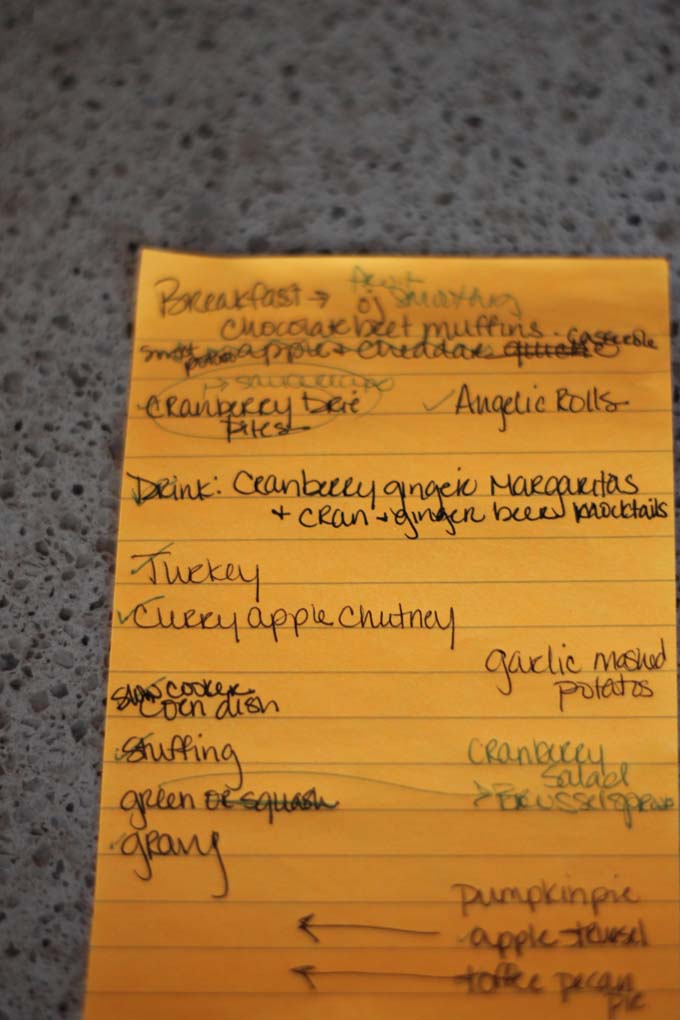 Breakfast → fruit
oj smoothies
chocolate beet muffins.
apple + cheddar quiche casserole
Cranberry brie
bites
✓ Angelic Rolls
Drink: Cranberry ginger Margaritas
+ cran + ginger beer mocktails
✓ Turkey
✓ Curry apple chutney
garlic mashed
potatos
slow cooker
Corn dish
✓ Stuffing
Cranberry
Salad
green or squash
→ Brussel sprouts
✓ gravy
pumpkin pie
← apple
← toffee pecan
pie